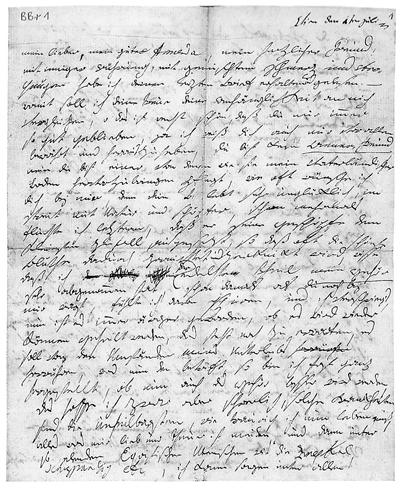 BBr 1
Wien den 1ten Juli
mein lieber, mein guter Amenda, mein herzlicher Freund,
mit inniger Rührung, mit gemischtem Schmerz und Ver-
gnügen habe ich deinen letzten Brief erhalten und gelesen –
womit soll ich deine Treue deine Anhänglichkeit an mich
vergleichen, o das ist recht schön, daß du mir immer
so gut geblieben, ja ich weiß dich auch mir vor allen
bewährt und herauszuheben, du bist kein Wiener Freund
nein du bist einer von denen wie sie mein Vaterländischer
Boden hervorzubringen pflegt, wie oft wünsche ich
dich bei mir, denn dein B lebt sehr unglücklich, im
streit mit Natur und schöpfer, schon mehrmals
fluchte ich leztern, daß er seine Geschöpfe dem
kleinsten Zufall ausgesezt, so daß oft die schönste
Blüthe dadurch zernichtet und zerknickt wird, wisse
daß edelste Theil mein Gehör
sehr abgenommen hat, schon damals als du noch bey
mir warst, fühlte ich davon spuren, und ich verschwiegs
nun ist es immer ärger geworden, ob es wird wieder
können geheilt werden, das steht noch zu erwarten, es
soll von den Umständen meines Unterleibs
herrühren, was nun den betrifft, so bin ich fast ganz
hergestellt, ob nun auch das Gehör besser wird werden
das hoffe ich zwar, aber schwerlich, solche Krankheiten
sind die unheilbarsten, wie traurig ich nun leben muß
alles was mir lieb und theuer ist meiden, und dann unter
so elenden Egoistischen Menschen wie die Zmeskal
Schuppanzig etc, ich kann sagen unter allen